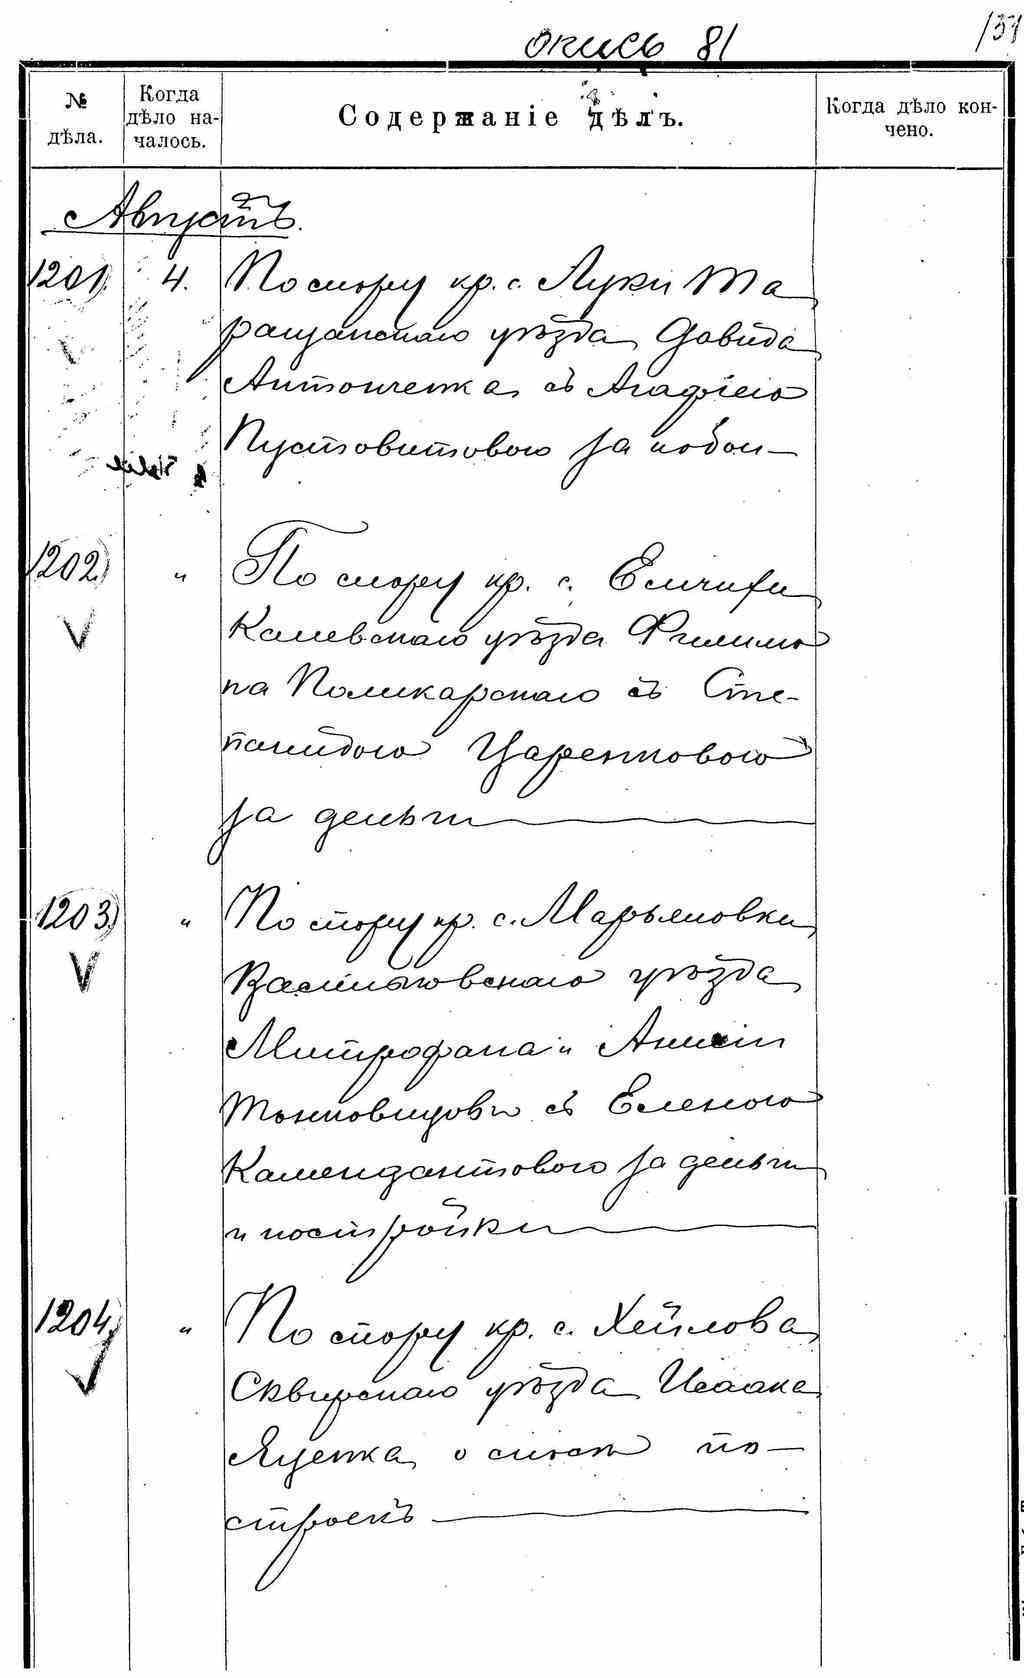 опись 81
137
№ дѣла.
Когда дѣло началось.
Содержаніе дѣлъ.
Когда дѣло кончено.
Августъ.
1201 4. По спору кр. с. Луки Та
ращанскаго уѣзда Давида
Антонченка съ Агафіею
Пустовитовою за побои —
1202 „ По спору кр. с. Емчихи
Каневскаго уѣзда Филимо
на Поликарскаго съ Сте-
панидою Царенковою
за деньги
1203 „ По спору кр. с. Марьяновки
Васильковскаго уѣзда
Митрофана и Анисіи
съ Еленою
Камендантовою за деньги
и постройки
1204 „ По спору кр. с. Хейлова
Сквирскаго уѣзда Исаака
Яценка о сносѣ по-
строекъ